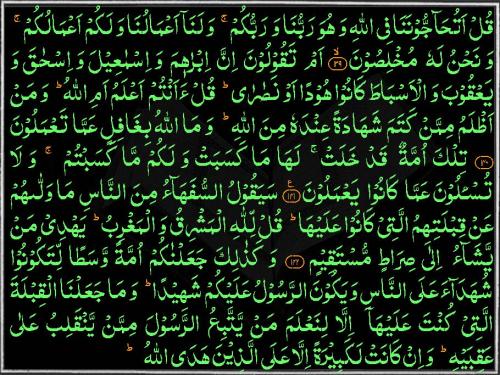 قُلْ اَتُحَآجُّوْنَنَا فِی اللّٰهِ وَ هُوَ رَبُّنَا وَ رَبُّكُمْ ۚ وَ لَنَآ اَعْمَالُنَا وَ لَكُمْ اَعْمَالُكُمْ ۚ
وَ نَحْنُ لَهٗ مُخْلِصُوْنَ ۙ﴿۱۳۹﴾ اَمْ تَقُوْلُوْنَ اِنَّ اِبْرٰهٖمَ وَ اِسْمٰعِیْلَ وَ اِسْحٰقَ وَ
یَعْقُوْبَ وَ الْاَسْبَاطَ كَانُوْا هُوْدًا اَوْ نَصٰرٰی ؕ قُلْ ءَاَنْتُمْ اَعْلَمُ اَمِ اللّٰهُ ؕ وَ مَنْ
اَظْلَمُ مِمَّنْ كَتَمَ شَهَادَةً عِنْدَهٗ مِنَ اللّٰهِ ؕ وَ مَا اللّٰهُ بِغَافِلٍ عَمَّا تَعْمَلُوْنَ
﴿۱۴۰﴾ تِلْكَ اُمَّةٌ قَدْ خَلَتْ ۚ لَهَا مَا كَسَبَتْ وَ لَكُمْ مَّا كَسَبْتُمْ ۚ وَ لَا
تُسْـَٔلُوْنَ عَمَّا كَانُوْا یَعْمَلُوْنَ ﴿۱۴۱﴾ سَیَقُوْلُ السُّفَهَآءُ مِنَ النَّاسِ مَا وَلّٰىهُمْ
عَنْ قِبْلَتِهِمُ الَّتِیْ كَانُوْا عَلَیْهَا ؕ قُلْ لِّلّٰهِ الْمَشْرِقُ وَ الْمَغْرِبُ ؕ یَهْدِیْ مَنْ
یَّشَآءُ اِلٰی صِرَاطٍ مُّسْتَقِیْمٍ ﴿۱۴۲﴾ وَ كَذٰلِكَ جَعَلْنٰكُمْ اُمَّةً وَّسَطًا لِّتَكُوْنُوْا
شُهَدَآءَ عَلَی النَّاسِ وَ یَكُوْنَ الرَّسُوْلُ عَلَیْكُمْ شَهِیْدًا ؕ وَ مَا جَعَلْنَا الْقِبْلَةَ
الَّتِیْ كُنْتَ عَلَیْهَاۤ اِلَّا لِنَعْلَمَ مَنْ یَّتَّبِعُ الرَّسُوْلَ مِمَّنْ یَّنْقَلِبُ عَلٰی
عَقِبَیْهِ ؕ وَ اِنْ كَانَتْ لَكَبِیْرَةً اِلَّا عَلَی الَّذِیْنَ هَدَی اللّٰهُ ؕ